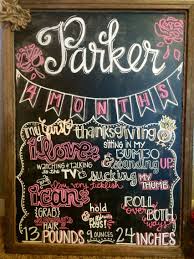 Parker
4 MONTHS
my first thanksgiving
i love
SITTING IN MY
BUMBO
WATCHING & TALKING
TO THE TV
& standing UP
& sucking
MY THUMB
i can
very ticklish
{GRAB}
hold
ROLL over BOTH ways!
HAIR
13 POUNDS 9 OUNCES 24 INCHES